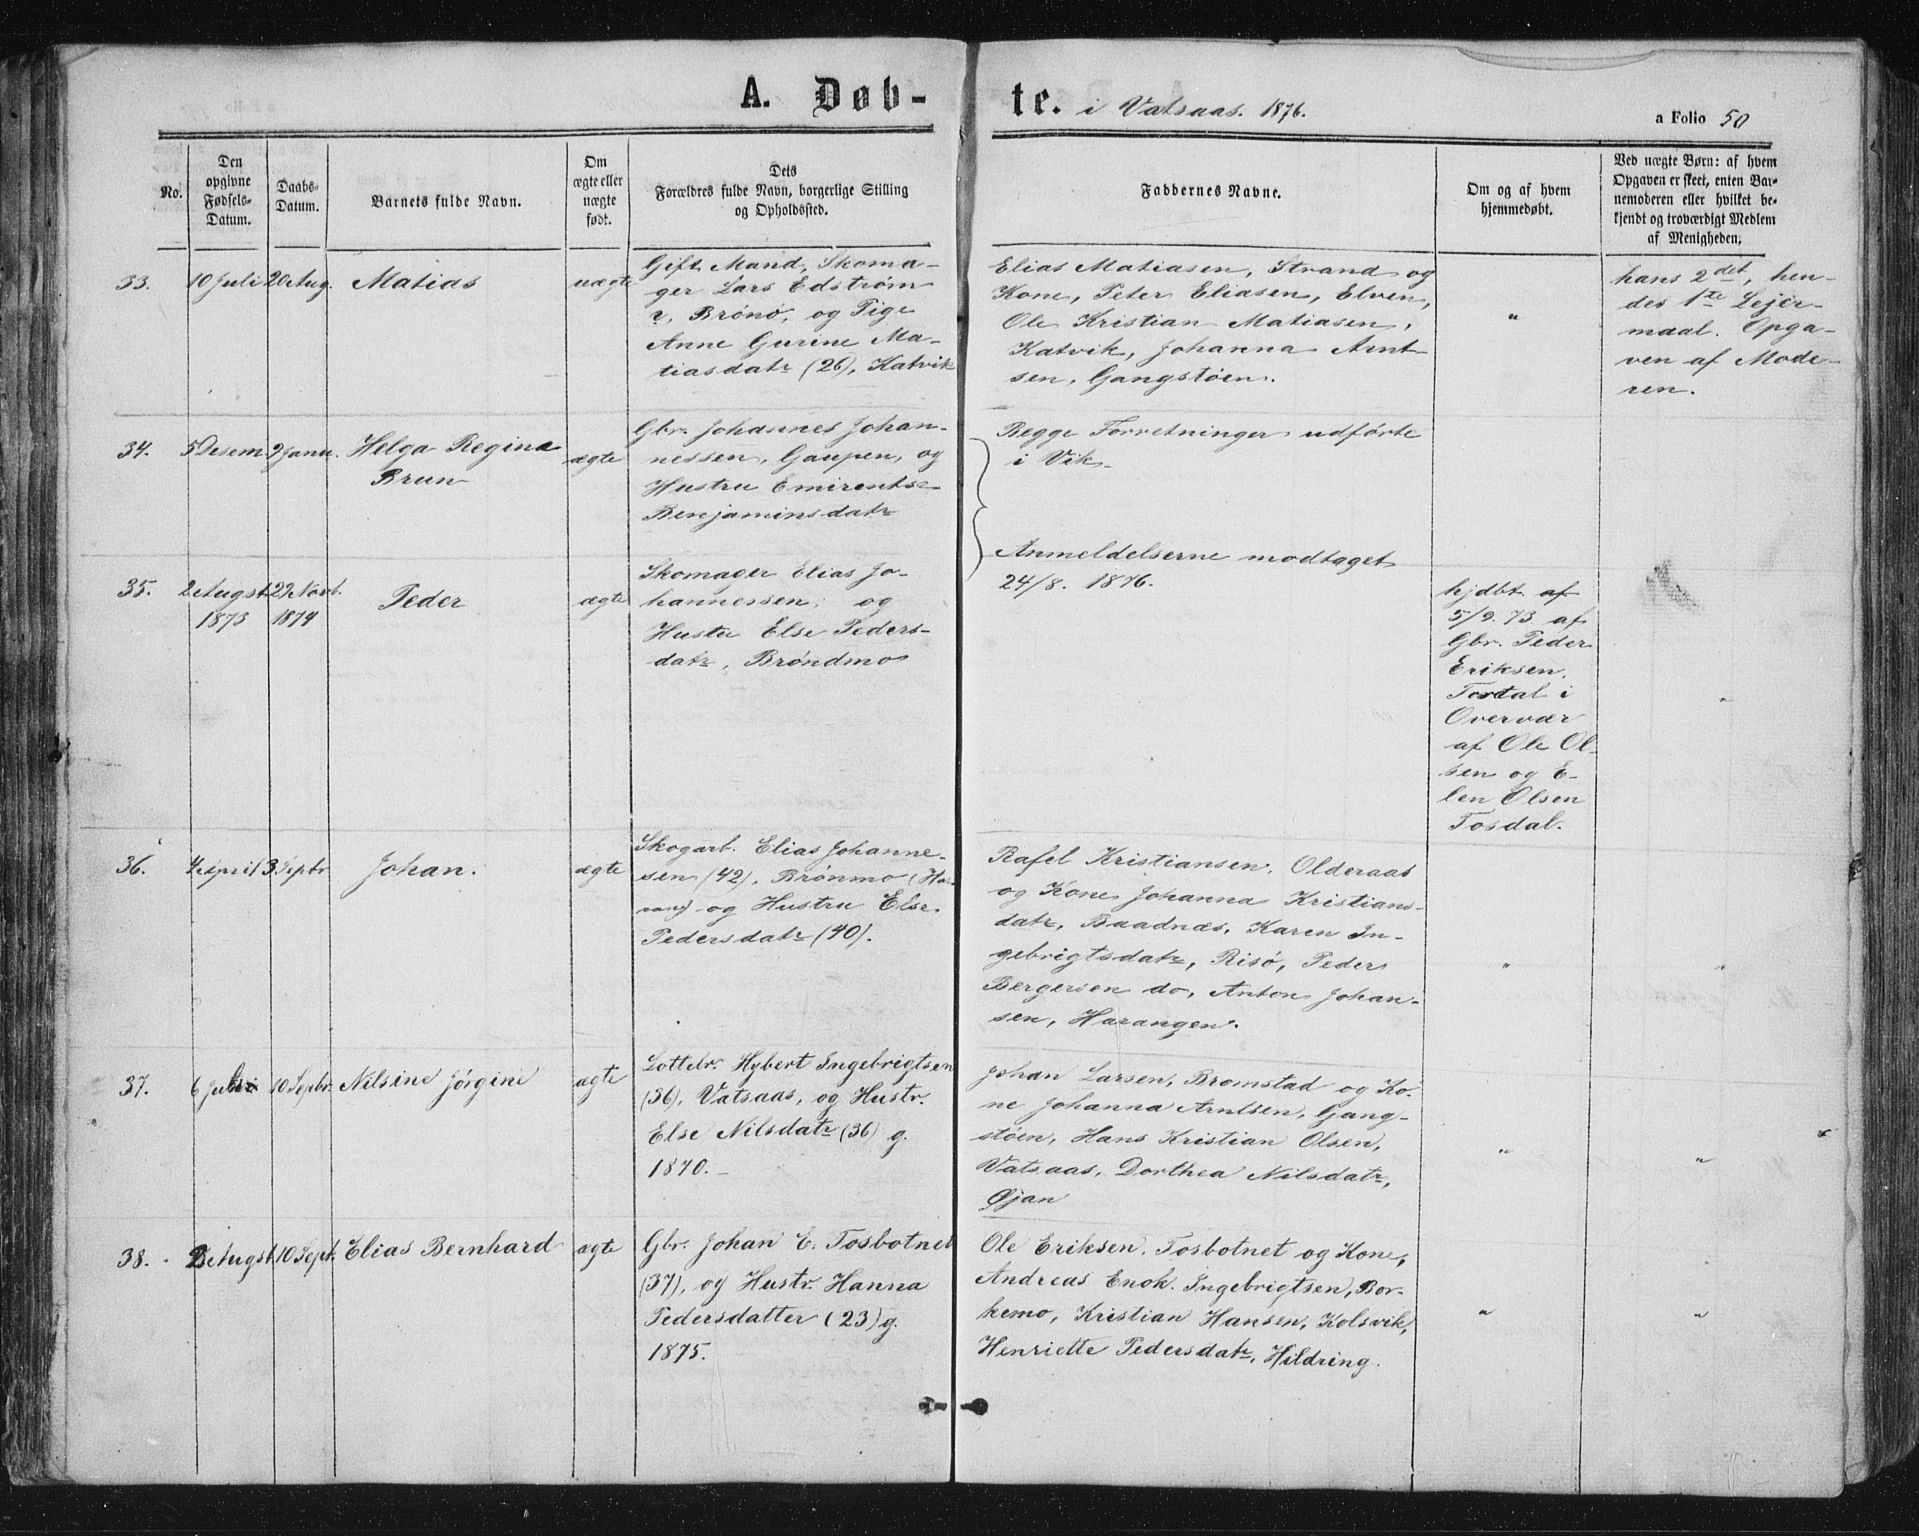 A. Døb-
te. i Vatsaas. 1876.
a Folio 50
No.
Den
opgivne
Fødsels-
Datum.
Daabs-
Datum.
Barnets fulde Navn.
Om
ægte eller
uægte
født.
Dets
Forældres fulde Navn, borgerlige Stilling
og Opholdssted.
Faddernes Navne.
Om og af hvem
hjemmedøbt.
Ved uægte Børn: af hvem
Opgaven er skeet, enten Bar-
nemoderen eller hvilket be-
kjendt og troværdigt Medlem
af Menigheden.
33.
10 Juli
20 Aug.
Matias
uægte
Gift Mand, Skoma-
ger Lars Edstrøm
Brønø, og Pige
Anne Gurine Ma-
tiasdatr (26), Katvik
Elias Matiasen, Strand og
Kone, Peter Eliasen, Elven,
Ole Kristian Matiasen,
Katvik, Johanna Arnt-
sen, Gangstøen.
"
hans 2det, hen-
des 1te Lejer-
maal. Opga-
ven af Mode-
ren.
34.
5 Desem
9 Janu.
Helga Regina
Brun
ægte
Gbr. Johannes Johan-
nessen, Gaupen, og
Hustru Emirentse
Benjaminsdatr
Begge Forretninger udførte
i Vik.
Anmeldelserne modtaget
24/8. 1876.
35.
2 Augst
1873
22 Novb.
1874
Peder
ægte
Skomager Elias Jo-
hannessen, og
Hustu Else Peders-
datr, Brøndmo
hjdbt af
5/9. 73 af
Gbr. Peder
Eriksen,
Tosdal i
Overvær
af Ole Ol-
sen og E-
len Olsen
Tosdal.
"
36.
4 april
3 Septbr
Johan.
ægte
Skogarb. Elias Johanne-
sen (42), Brønmo (Ha-
rang) og Hustru Else
Pedersdatr (40).
Rafel Kristiansen, Olderaas
og Kone Johanna Kristians-
datr, Baadnæs, Karen In-
gebrigtsdatr, Risø, Peder
Bergersen do, Anton Johan-
sen, Harangen.
"
"
37.
6 Juli
10 Sepbr.
Nilsine Jørgine
ægte
Lottebr. Hybert Ingebrigtsen
(36), Vatsaas, og Hustr.
Else Nilsdatr (36) g.
1870.
Johan Larsen, Bromstad og Ko-
ne Johanna Arntsen, Gang-
støen, Hans Kristian Olsen,
Vatsaas, Dorthea Nilsdatr,
Øjan
"
"
38.
Augst
10 Sept.
Elias Bernhard
ægte
Gbr. Johan E. Tosbotnet
(37), og Hustr. Hanna
Pedersdatter (23) g.
1875.
Ole Eriksen, Tosbotnet og Kone,
Andreas Enok Ingebrigtsen, Bor-
kemo, Kristian Hansen, Kolsvik,
Henriette Pedersdatr, Hildring.
"
"